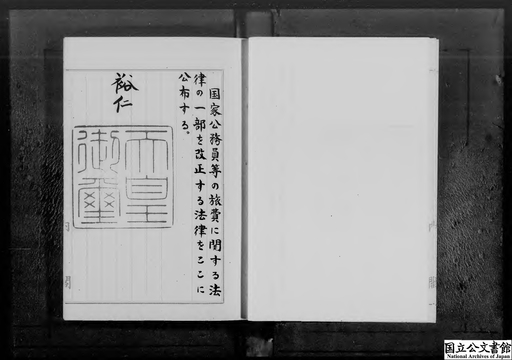 国家公務員等の旅費に関する法
律の一部を改正する法律をここに
公布する。
裕仁
天皇
御璽
国立公文書館
National Archives of Japan